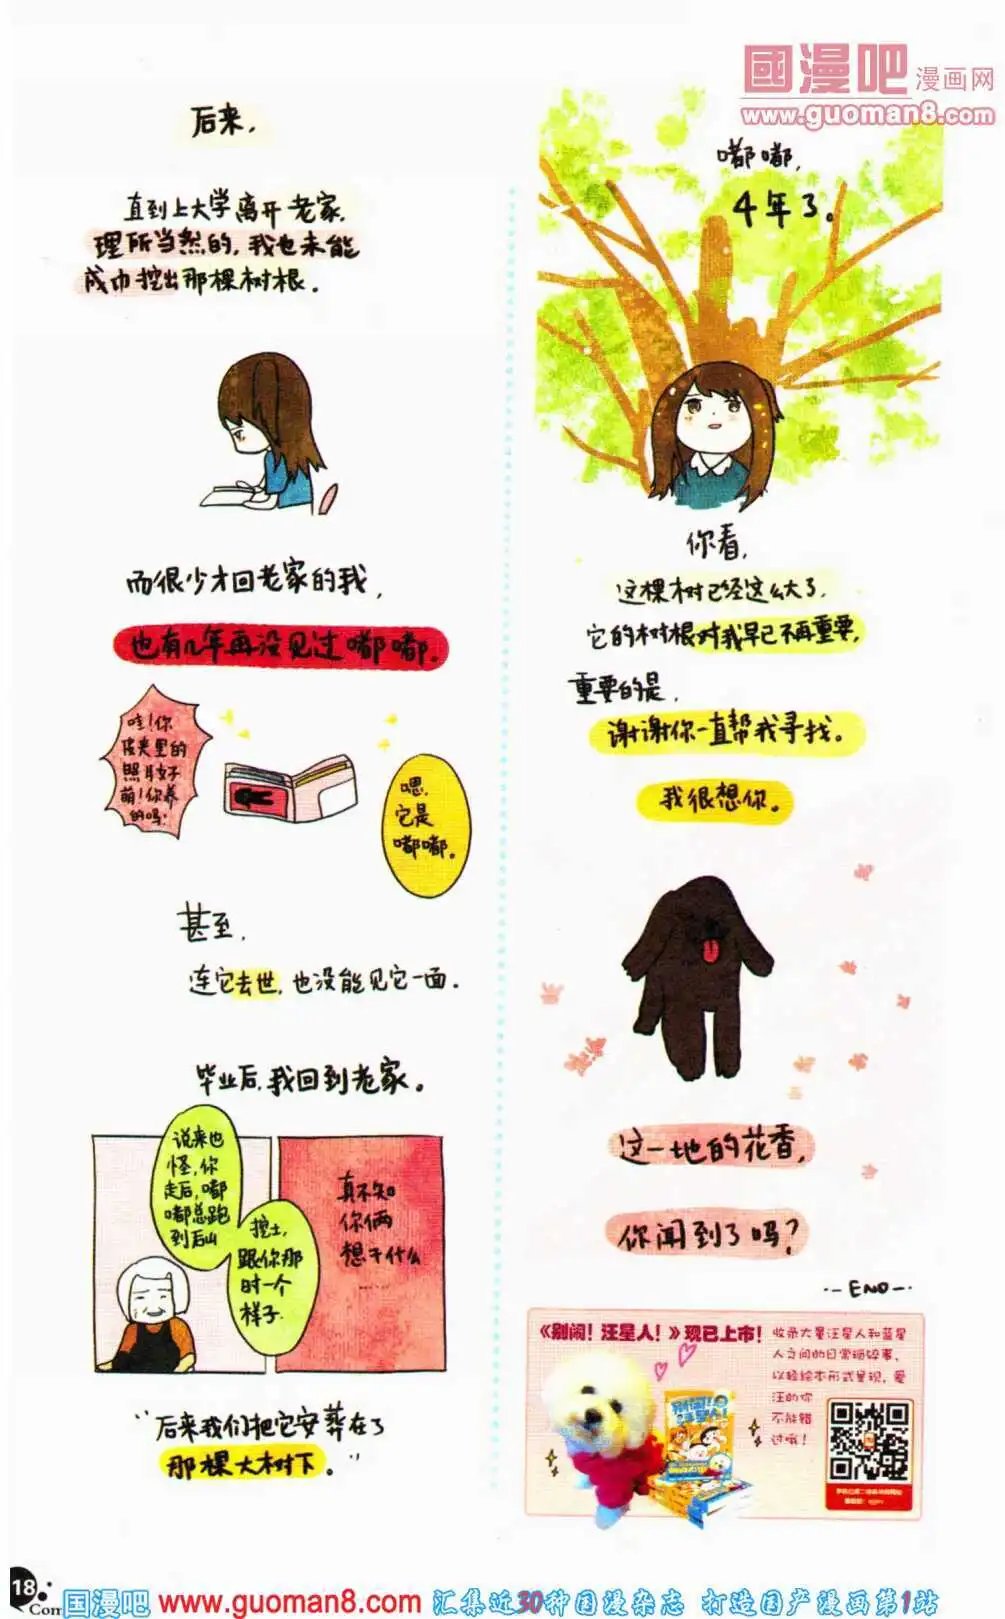 國漫吧 漫画网
www.guoman8.com
后来，
直到上大学离开老家，
理所当然的，我也未能
成功挖出那棵树根。
而很少才回老家的我，
也有几年再没见过嘟嘟。
哇！你
皮夹里的
照片好
萌！你养
的吗？
嗯，
它是
嘟嘟。
甚至，
连它去世，也没能见它一面。
毕业后，我回到老家。
说来也
怪，你
走后，嘟
嘟总跑
到后山
挖土，
跟你那
时一个
样子。
真不知
你俩
想干什么
……
“后来我们把它安葬在了
那棵大树下。”
嘟嘟，
4年了。
你看，
这棵树已经这么大了，
它的树根对我早已不再重要，
重要的是，
谢谢你一直帮我寻找。
我很想你。
这一地的花香，
你闻到了吗？
--END--
《别闹！汪星人！》现已上市！
收录大量汪星人和蓝星
人之间的日常琐碎事，
以轻绘本形式呈现，爱
汪的你
不能错
过哦！
别闹！
汪星人！
18
Com
国漫吧 www.guoman8.com 汇集近30种国漫杂志 打造国产漫画第1站